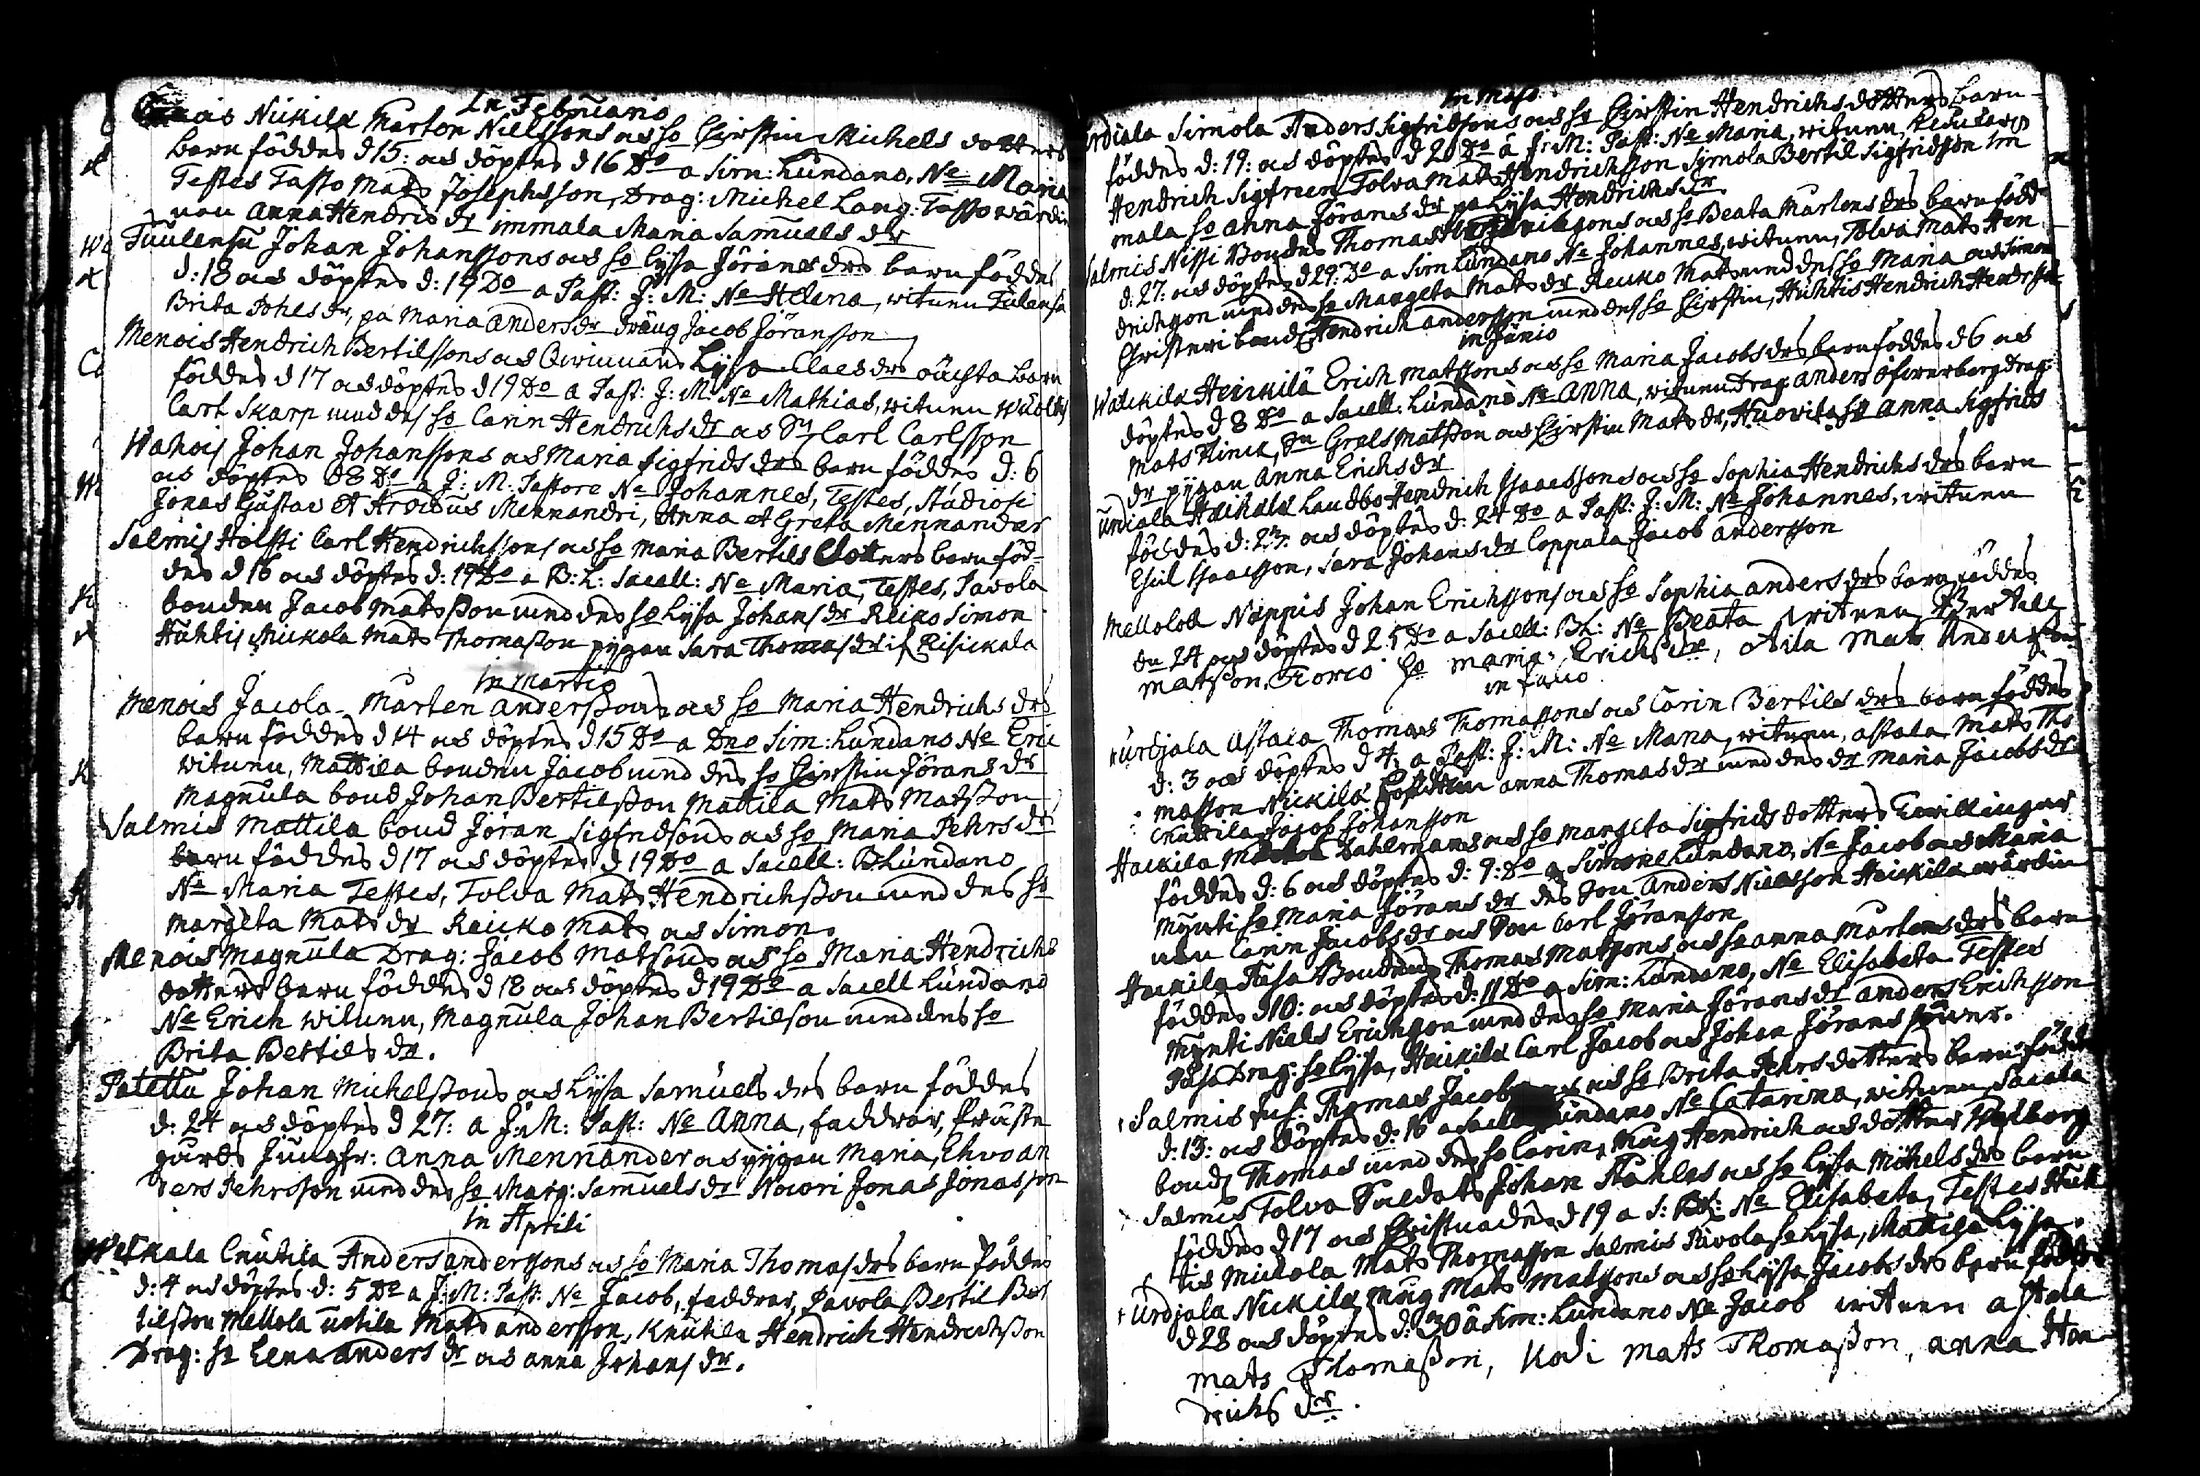 In Februario
Nickilä Marten Nielssons och ho Christin Michels dotters
barn föddes d 15: och döptes d 16 Do a Sim: Lundano, Ne Maria
Testes Tasto Mats Josephsson, Drag: Michel Lang: Tasto wärdin
nan Anna Hendrics dr immala Maria Samuels dr
Tuulensu Johan Johanssons och ho Lysa Jörans drs barn föddes
d: 18 och döptes d: 19 Do a Past: J: M: Ne Helena, witnen Tulensu
Brita Johes dr, pa Maria Anders dr dräng Jacob Jöransson
Menois Hendrich Bertilssons och Qwinnans Lysa Claes drs oächta barn
föddes d 17 och döptes d 19 Do a Past: J: M: Ne Mathias, witnen
Carl Skarp med des ho Carin Hendrichs dr och Sn Carl Carlsson
Wahois Johan Johanssons och Maria Sigfrids drs barn föddes d: 6
och döptes d 8 Do a J: M: Pastore Ne Johannes, Testes, Studiosi
Jonas Gustav et Arvidus Mennandri, Anna et Greta Mennander
Salmis Holsti Carl Hendrichssons och ho Maria Bertils dotters barn föd-
des d 16 och döptes d: 19 Do a B: L: Sacell: Ne Maria, Testes, Pavola
bonden Jacob Mats sson med des ho Lysa Johans dr Reiko Simon
Huhtis Mickola Mats Thomasson pygan Sara Thomas dr if Risickala
in Martio
Menois Jacola Marten Anderssons och ho Maria Hendrichs drs
barn föddes d 14 och döptes d 15 Do a Dno Sim: Lundano Ne Eric
witnen, Mattila bonden Jacob med des ho Christin Jörans dr
Magnula bond Johan Bertilsson Mattila Mats Matsson
Salmis Mattila bond Jöran Sigfridsons och ho Maria Pehrs dr
barn föddes d 17 och döptes d 19 Do a Sacell: B Lundano
Ne Maria Testes, Tolva Mats Hendrichsson med des ho
Margeta Mats dr Reicko Mats och Simon.
Menois Magnula Drag: Jacob Matsons och ho Maria Hendrichs
dotters barn föddes d 18 och döptes d 19 Do a Sacell Lundano
Ne Erich witnen, Magnula Johan Bertilson med des ho
Brita Bertils dr.
Patettu Johan Michelssons och Lysa Samuels drs barn föddes
d: 24 och döptes d 27: a J: M: Past: Ne Anna, faddrar, Präste
gårds Jungfr: Anna Mennander och pygan Maria, Ehvo an
ders Pehrsson med des ho Marg: Samuels dr Novri Jonas Jonasson
in Aprili
Knutila Anders anderssons och ho Maria Thomas drs barn föddes
d: 4 och döptes d: 5 Do a J: M: Past: Ne Jacob, faddrar, Pavola Bertil Ber
tilsson Mellola uotila Mats andersson, Knutila Hendrich Hendrichsson
Drag: ho Lena Anders dr och anna Johans dr.
in Majo
Simola Anders Sigfridsons och ho Christin Hendrichs dotters barn
föddes d: 19: och döptes d 20 Do a J: M: Past: Ne Maria, witnen,
Hendrich Sigfreen Tolva Mats Hendrichsson Symola Bertil Sigfridsson im
mala ho Anna Jörans dr pa Lysa Hendrichs dr
Salmis Nissi Bondes Thomas och ho Beata Martens drs barn född
d: 27: och döptes d 29: Do a Sim Lundano Ne Johannes, witnen, Tolva Mats Hen
drichson med des ho Margeta Mats dr Reicko Mats med des ho Maria och Simon
Hendrich andersson med des ho Christin, Huhtis Hendrich
in Junio
Heickilä Erich Matssons och ho Maria Jacobs drs barn föddes d 6 och
döptes d 8 Do a Sacell: Lundano Ne Anna, witnen Drag: Anders Drag:
Mats Grels Matsson och Christin Mats dr, Huovila ho Anna Sigfrids
dr pygan Anna Erichs dr
Landbo Hendrich Isaacssons och ho Sophia Hendrichs drs barn
föddes d: 23: och döptes d: 24 Do a Past: J: M: Ne Johannes, witnen
Isaacsson, Sara Johans dr Coppala Jacob andersson
Mellola Näppis Johan Erichssons och ho Sophia Anders drs barn föddes
dn 24 och döptes d 25 Do a Sacell: BL: Ne Beata witnen
Matsson, ho Maria Erichs dr, Mats Anderson
in Julio
Urdjala Astala Thomas Thomassons och Carin Bertils drs barn föddes
d: 3 och döptes d 4: a Past: J: M: Ne Maria, witnen, Astala Mats Tho
masson Nickilä anna Thomas dr med des dr Maria Jacobs dr
Jacob Johansson
Hackila Dahlmans och ho Margeta Sigfrids dotters twillingar
föddes d: 6 och döptes d: 9: Do a Simone Lundano, Ne Jacob och Maria
Mynti ho Maria Jörans dr des son Anders Nielsson Heickila wärdin
nan Carin Jacobs dr och Son Carl Jöransson
Pasa Bondens Thomas Matsons och ho anna Martens drs barn
föddes d 10: och döptes d: 11 Do a Sim: Lundano, Ne Elisabeta Testes
Mynti Niels Erichsson med des ho Maria Jörans dr Anders Erichsson
Pasa Drag: ho Lysa, Heickila Carl Jacob och Johan Jörans söner.
Salmis Thomas Jacob och ho Brita Pehrs dotters barn födde
d: 13: och döptes d: 16 a Sacell Lundano Ne Catarina, witnen, Sacala
bond Thomas med des ho Carin, Hendrich och dotter Walborg
Salmis Tolva Suldats Johan Stahles och ho Lysa Michels drs barn
föddes d 17 och Christnades d 19 a S: BL: Ne Elisabeta, Testes Huh
tis Mickola Mats Thomasson Salmis Pavola ho Lysa, Mattila Lysa.
Urdjala Nickilä Mats Matssons och ho Lysa Jacobs drs barn föddes
d 28 och döptes d: 30 a Sim: Lundano Ne Jacob witnen astala
Mats Thomasson, Kodi Mats Thomasson, anna Hen
drichs dr.